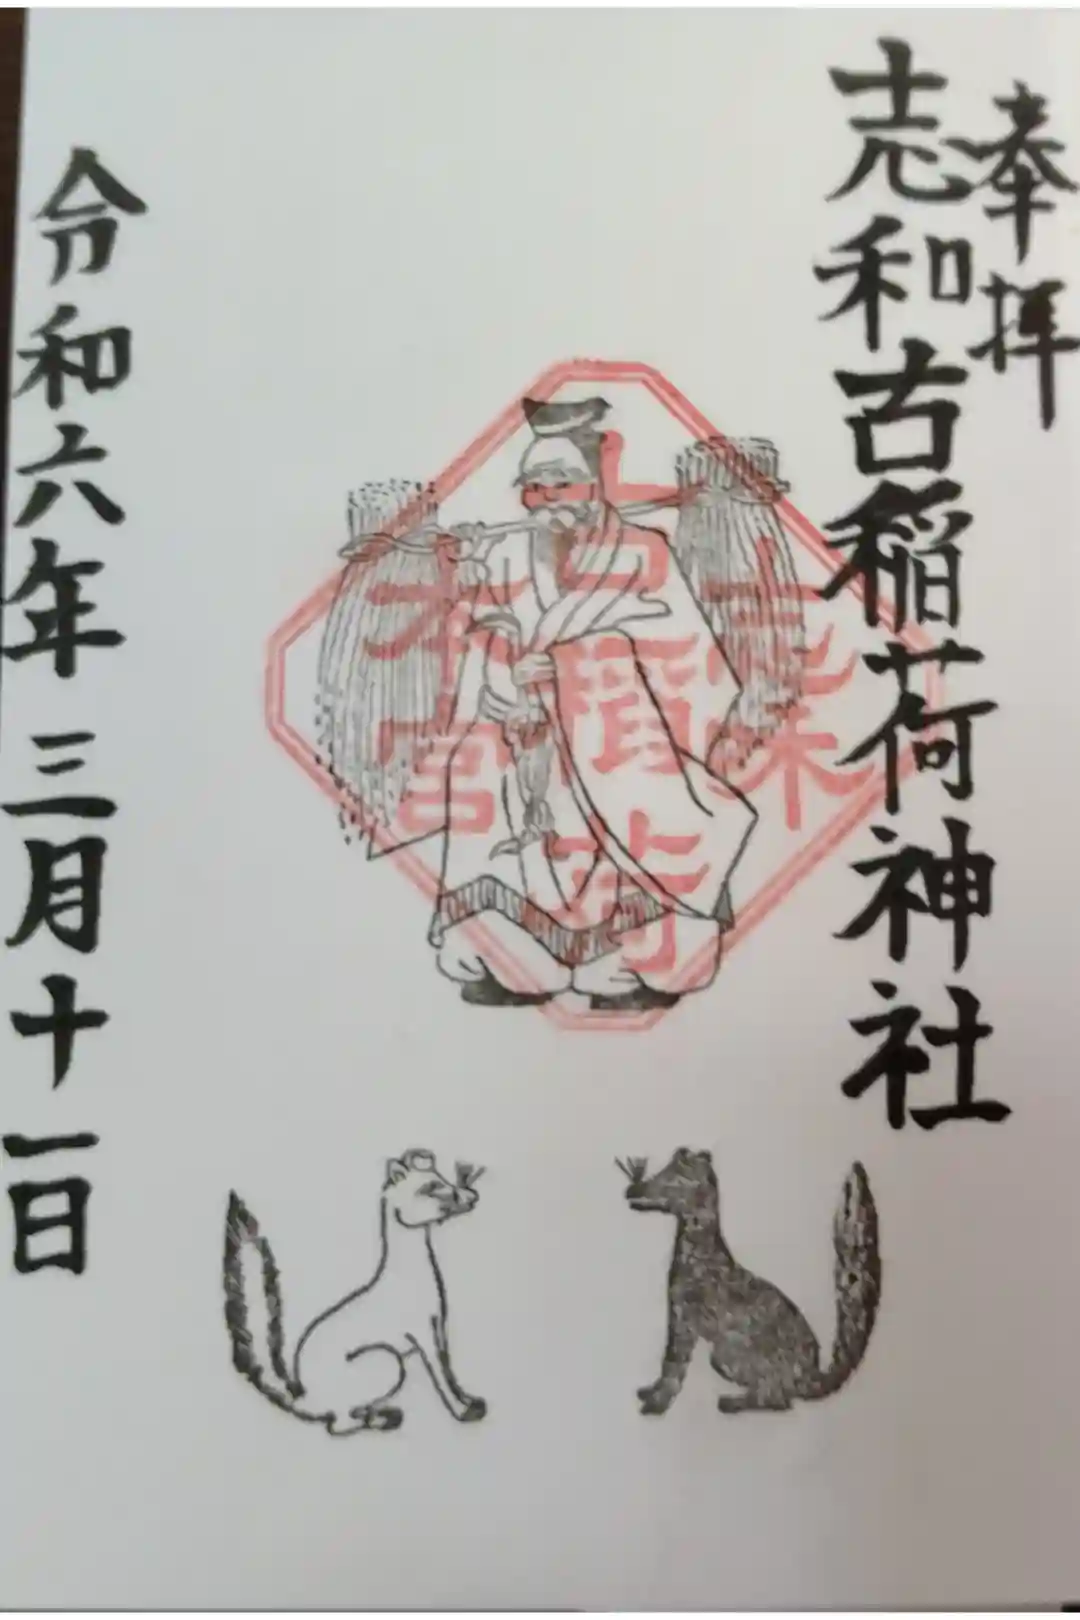 奉拝
志和古稲荷神社
志咊
古稲荷
本宮
令和六年三月十一日